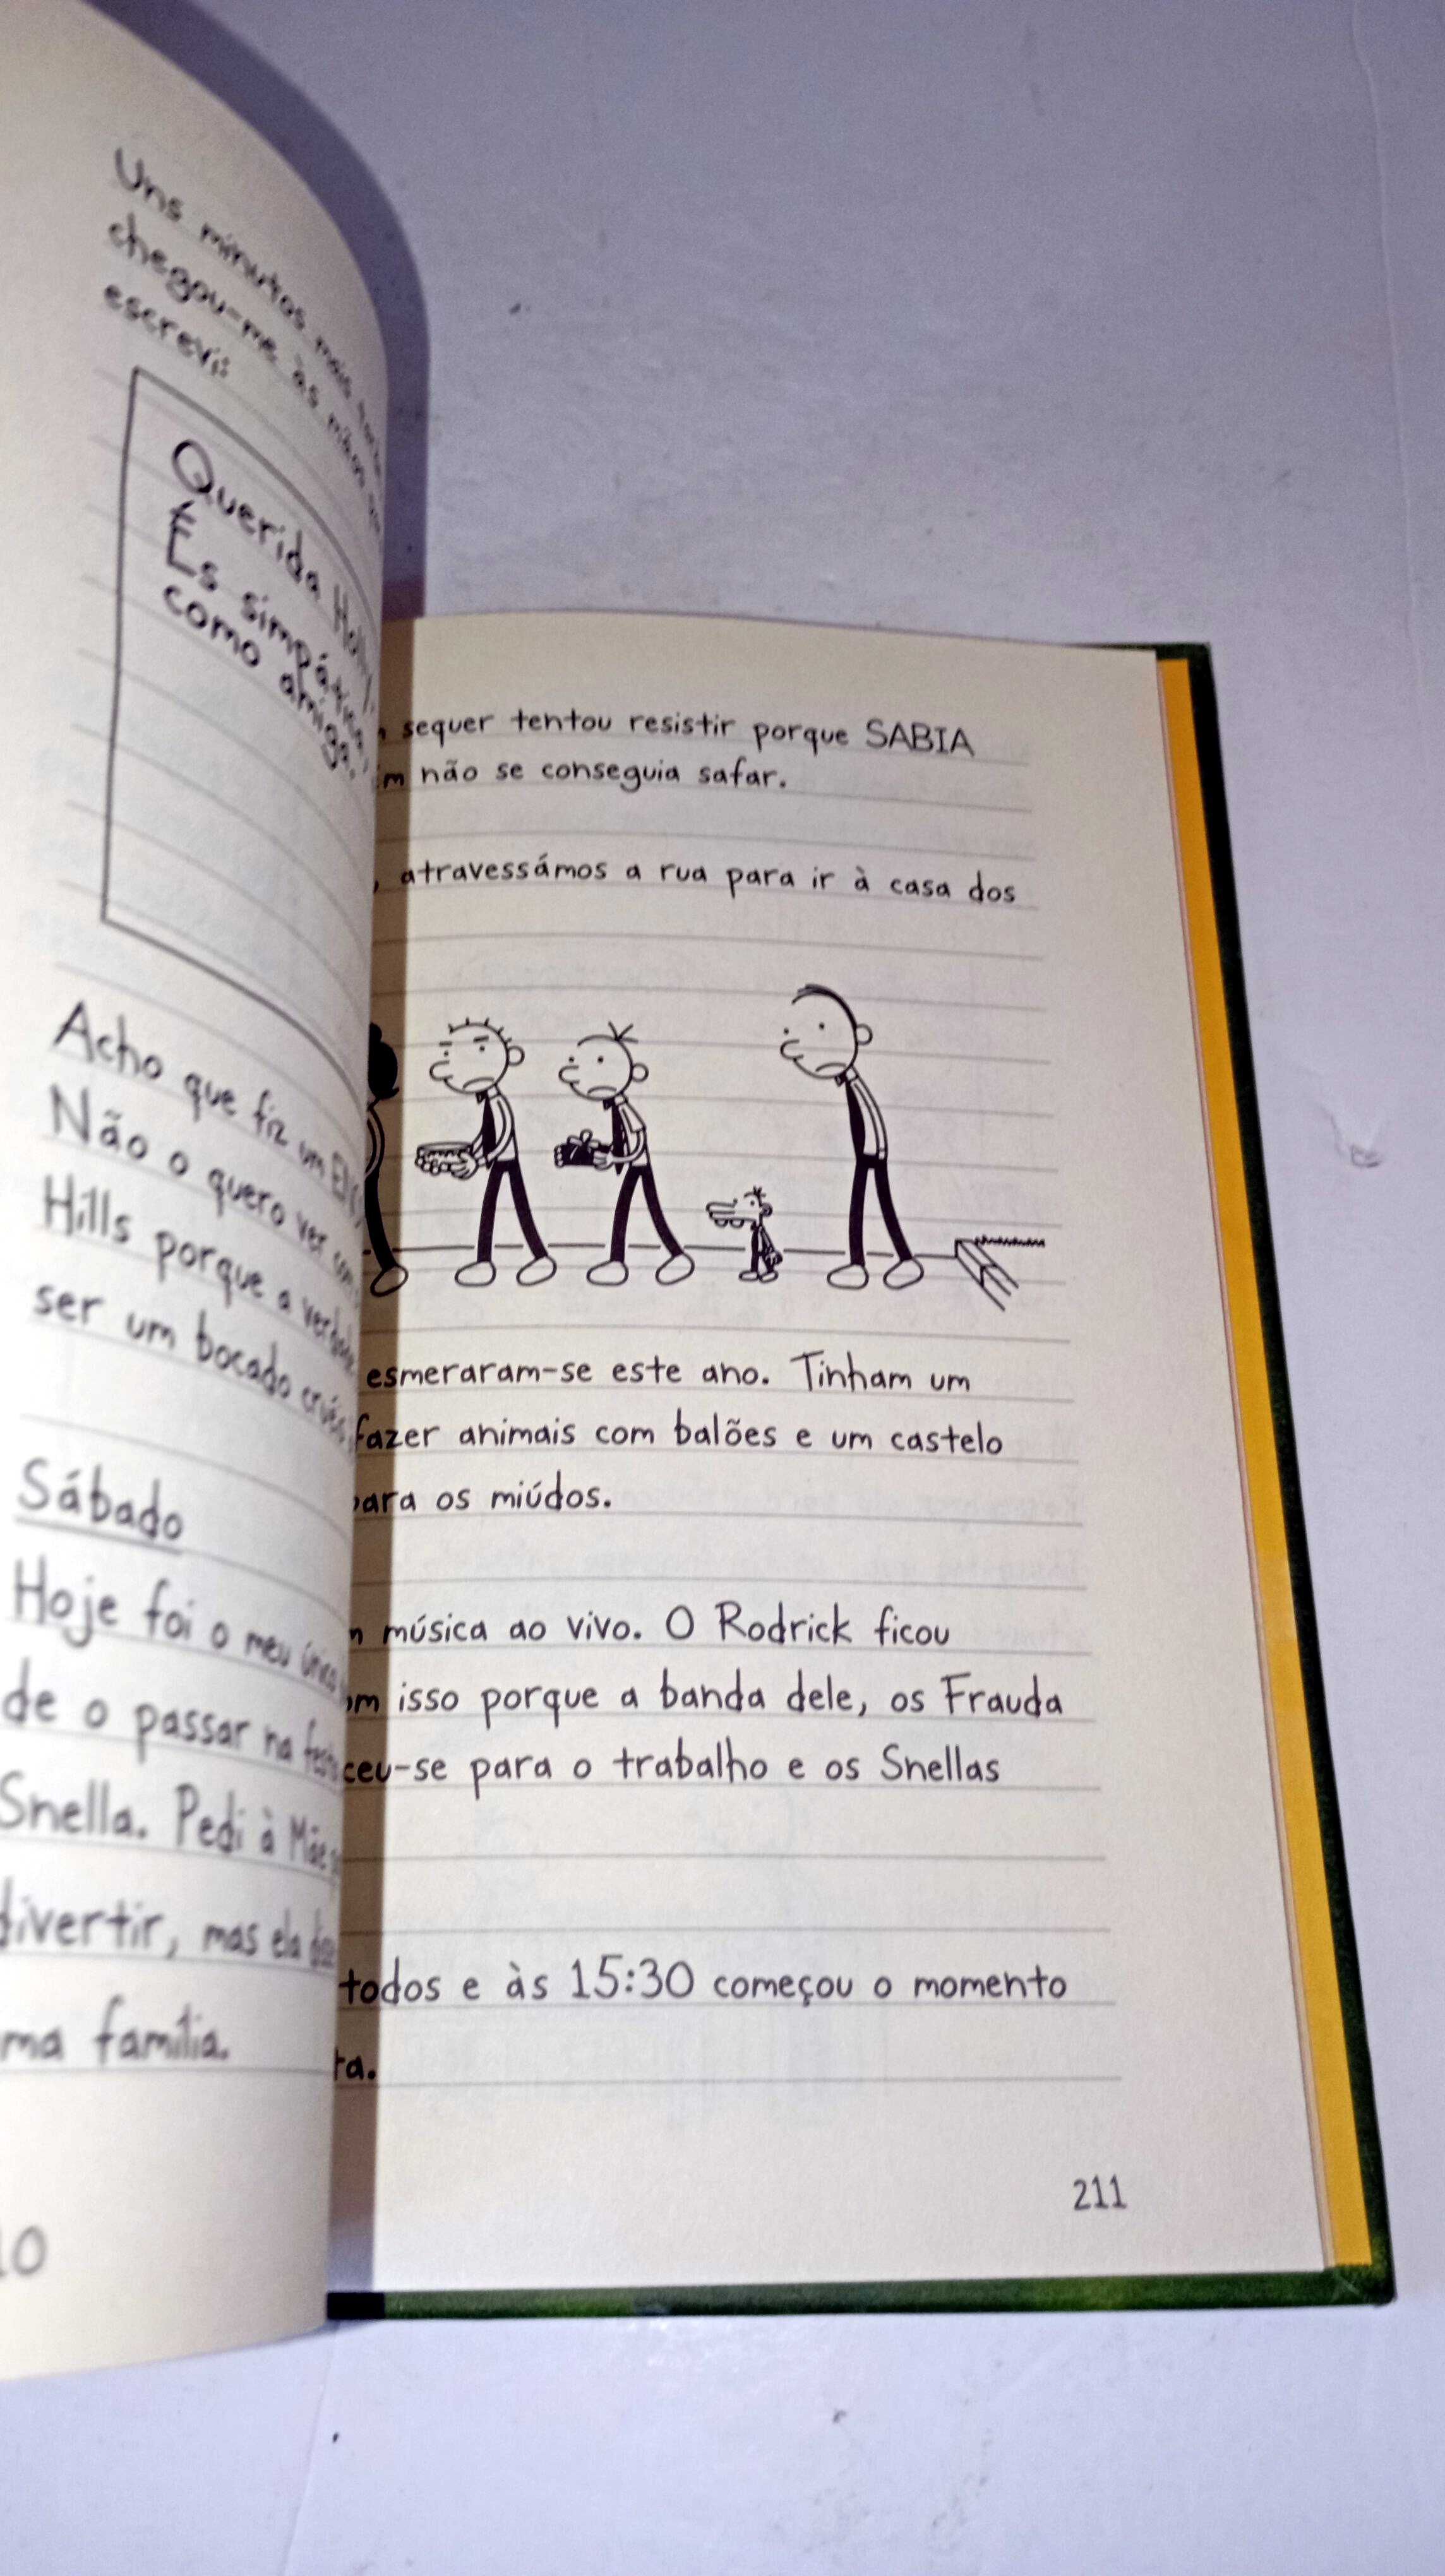 Uns minutos mais
chegou-me às mãos
escrevi:
Querida Holly,
És simpática,
como amiga.
Acho que fiz um
Não o quero ver com
Hills porque a verdade
ser um bocado
Sábado
Hoje foi o meu único
de o passar na festa
Snella. Pedi à Mãe
divertir, mas ela
ma família.
10
sequer tentou resistir porque SABIA
m não se conseguia safar.
, atravessámos a rua para ir à casa dos
esmeraram-se este ano. Tinham um
fazer animais com balões e um castelo
para os miúdos.
música ao vivo. O Rodrick ficou
om isso porque a banda dele, os Frauda
ceu-se para o trabalho e os Snellas
todos e às 15:30 começou o momento
ta.
211